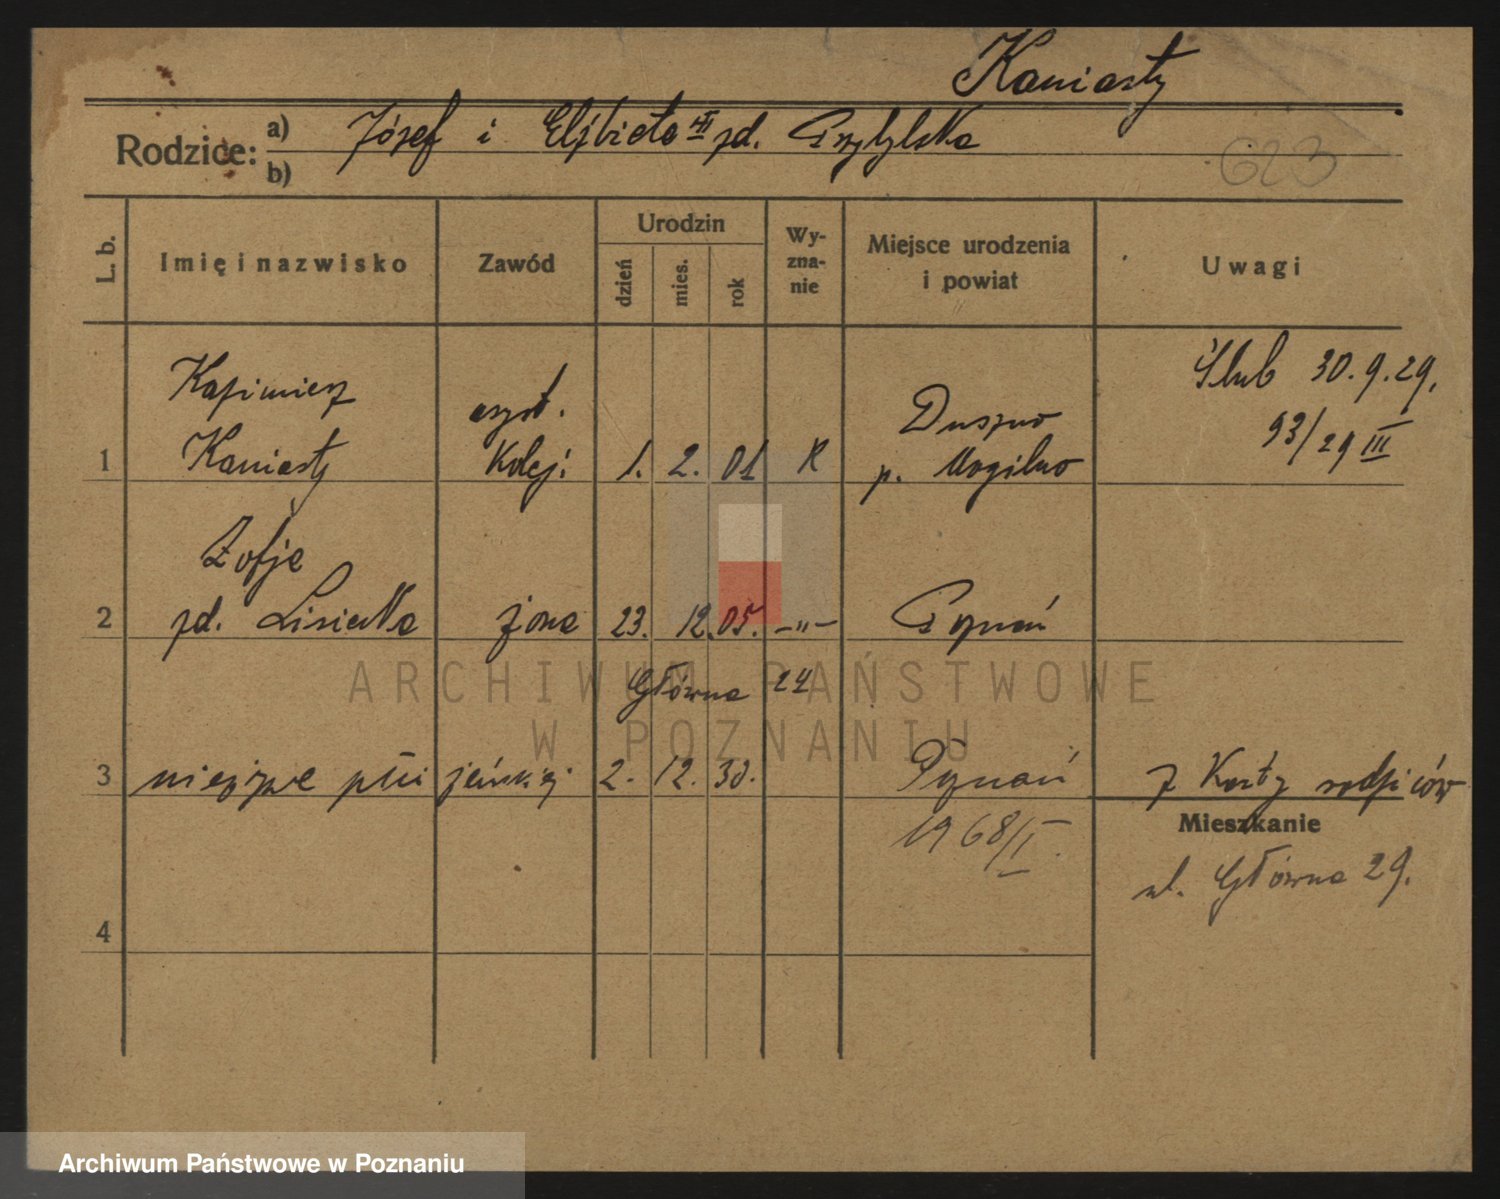 Kaniasty
Rodzice: a) Józef i Elżbieta zd. Przybylska
b)
623
L. b.
Imię i nazwisko
Zawód
Urodzin
dzień
mies.
rok
Wy-
zna-
nie
Miejsce urodzenia
i powiat
Uwagi
Kazimierz
Kaniasty
1
Kolej.
1. 2. 01
R
Duszno
p. Mogilno
Ślub 30.9.29.
93/29 III
Zofja
2
zd. Lisiecka
żona
23. 12. 05.
-"-
Poznań
Główna 24
3
nieżywe płci żeńskiej
2. 12. 30.
Poznań
1968/I.
z Karty rodziców
Mieszkanie
ul. Główna 29.
4
ARCHIWUM PAŃSTWOWE
W POZNANIU
Archiwum Państwowe w Poznaniu